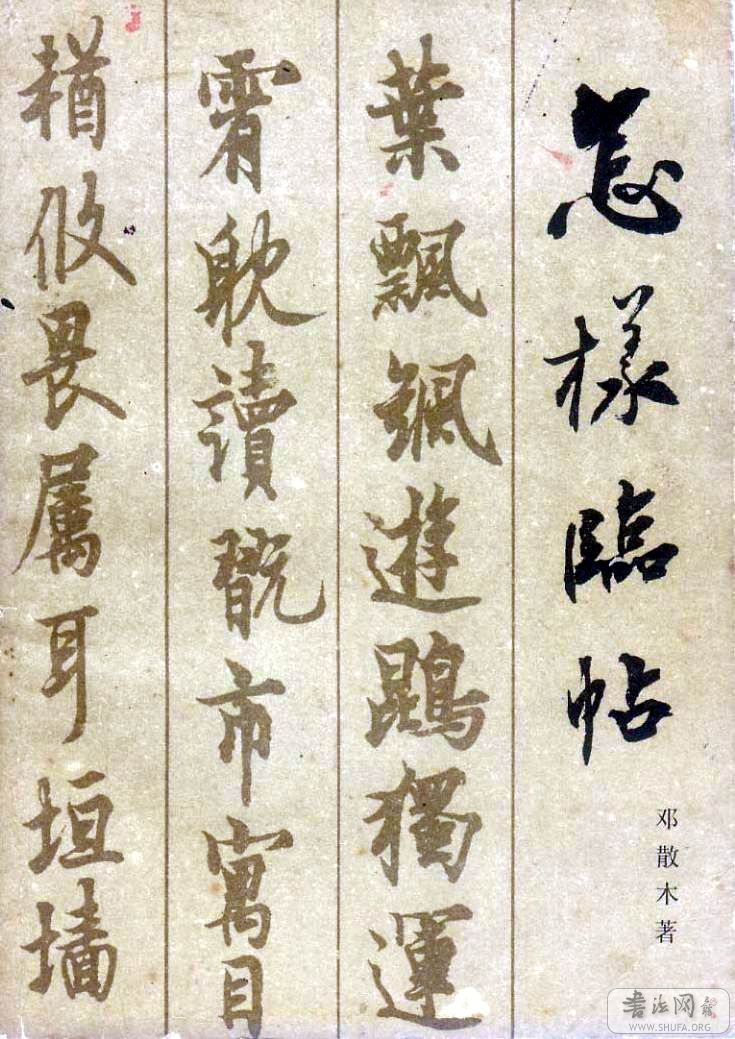 怎樣臨帖
邓散木著
葉飄颻遊鵾獨運
霄躭讀翫市寓目
輶攸畏屬耳垣墻
書法网
WWW.SHUFA.ORG